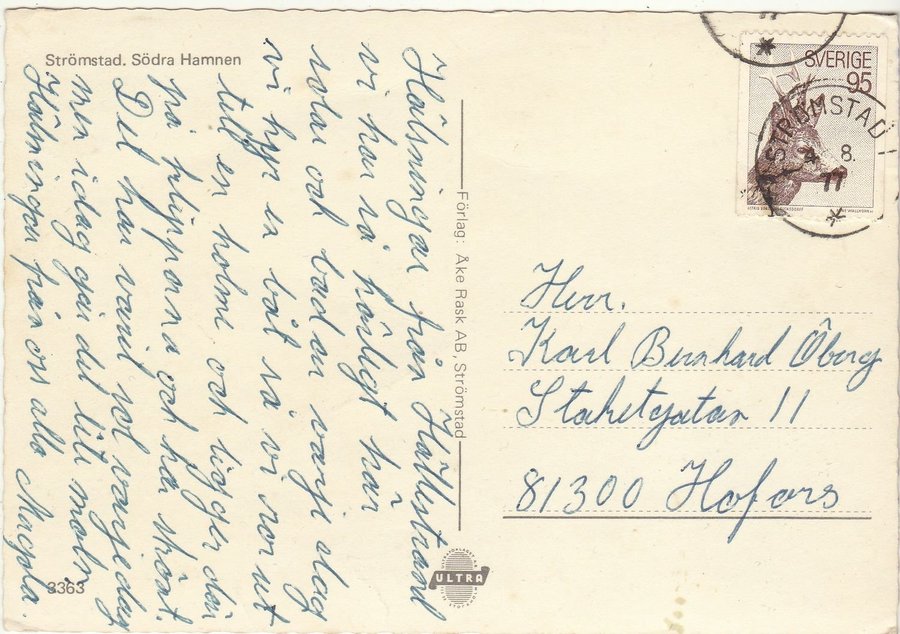 Strömstad. Södra Hamnen
Hälsningar från Hällestrand
vi har så härligt här
solar och badar varje dag
vi hyr en båt så vi ror ut
till en holme och ligger där
på klipporna och ha skönt.
Det har varit sol varjedag
men idag går det lite moln
Hälningar från oss alla Magda.
3363
Förlag: Åke Rask AB, Strömstad
ULTRA
SVERIGE
95
STRÖMSTAD 1
4 8.
77
Herr.
Karl Bernhard Öberg
Staketgatan 11
81300 Hofors